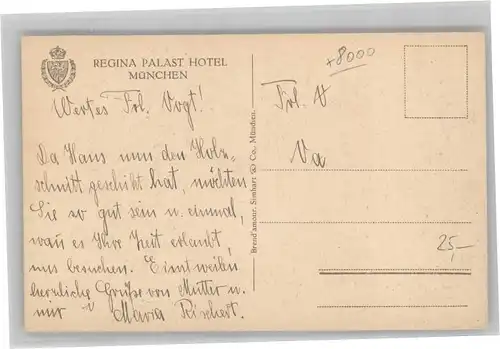 REGINA PALAST HOTEL
MÜNCHEN
Wertes Frl. Vogt!
Da Hans nun den Holz-
schnitt geschickt hat, möchten
Sie so gut sein u. einmal,
wan es Ihre Zeit erlaubt,
uns besuchen. Einstweilen
herzliche Grüße von Mutter u.
mir Maria Reichert.
Brend'amour, Simhart & Co., München.
+8000
Frl. V
Va
25,-